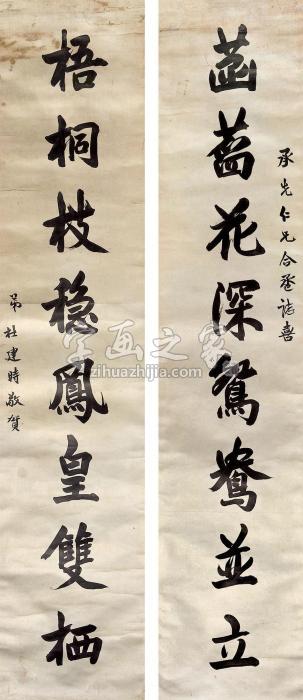 承先仁兄合卺誌喜
菡萏花深鴛鴦並立
梧桐枝稳鳳皇雙栖
弟杜建時敬賀
字画之家
zihuazhijia.com